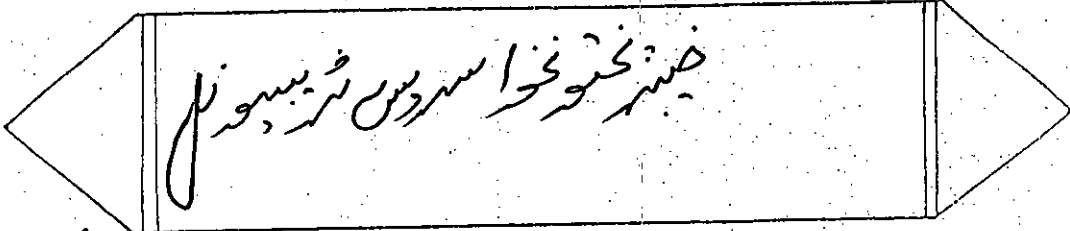 خیبر پختونخوا سروس ٹریبیونل